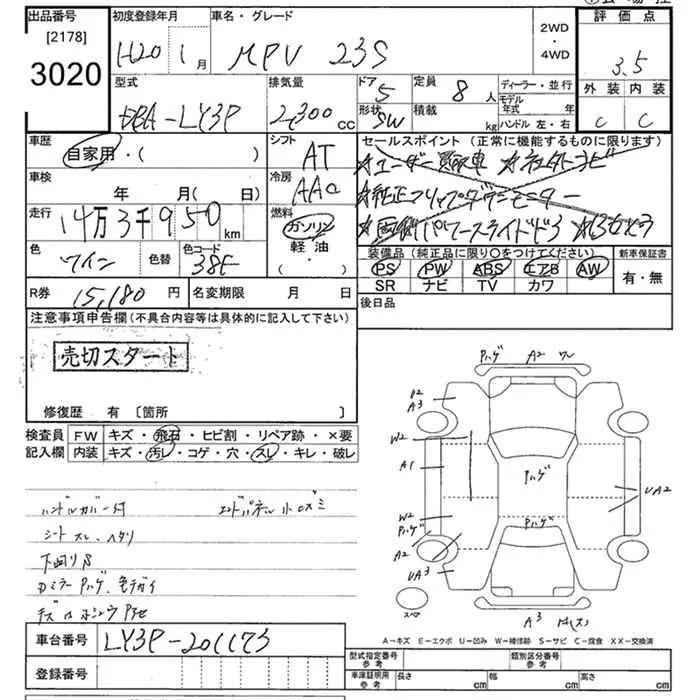 出品番号
[2178]
3020
初度登録年月
H20 1月
車名・グレード
MPV 23S
2WD
・
4WD
評価点
3.5
外装 内装
C C
型式
DBA-LY3P
排気量
2,300cc
ドア
5
形状
SW
定員
8人
積載
kg
ディーラー・並行
モデル年式 年
ハンドル 左・右
車歴
自家用・( )
シフト
AT
セールスポイント(正常に機能するものに限ります)
★ユーザー買取車
★純正フリップダウンモニター
★両側パワースライドドア
車検
年 月( 日)
冷房
AAC
走行
14万3千950km
燃料
ガソリン
軽油
・( )
色
ワイン
色替
色コード
38E
装備品(純正品に限り○をつけてください)
PS PW ABS エアB AW
SR ナビ TV カワ
新車保証書
有・無
R券 15,180円
名変期限 月 日
後日品
注意事項申告欄(不具合内容等は具体的に記入して下さい)
売切スタート
修復歴 有〔箇所 〕
検査員
記入欄
FW キズ・飛石・ヒビ割・リペア跡・×要
内装 キズ・汚レ・コゲ・穴・スレ・キレ・破レ
ハンドルカバー付
エンドパネル小ユガミ
シートスレ、ヘタリ
下回りS
Dミラーハゲ、色チガイ
車台番号 LY3P-201173
登録番号
ハゲ A2 ワレ
A3
W2
A1
ハゲ
UA2
W2
ハゲ
ハゲ
A2
UA3
スペア
A3
A-キズ E-エクボ U-凹み W-補修跡 S-サビ C-腐食 XX-交換済
型式指定番号
参考
類別区分番号
参考
車庫証明用
参考
長さ cm
幅 cm
高さ cm